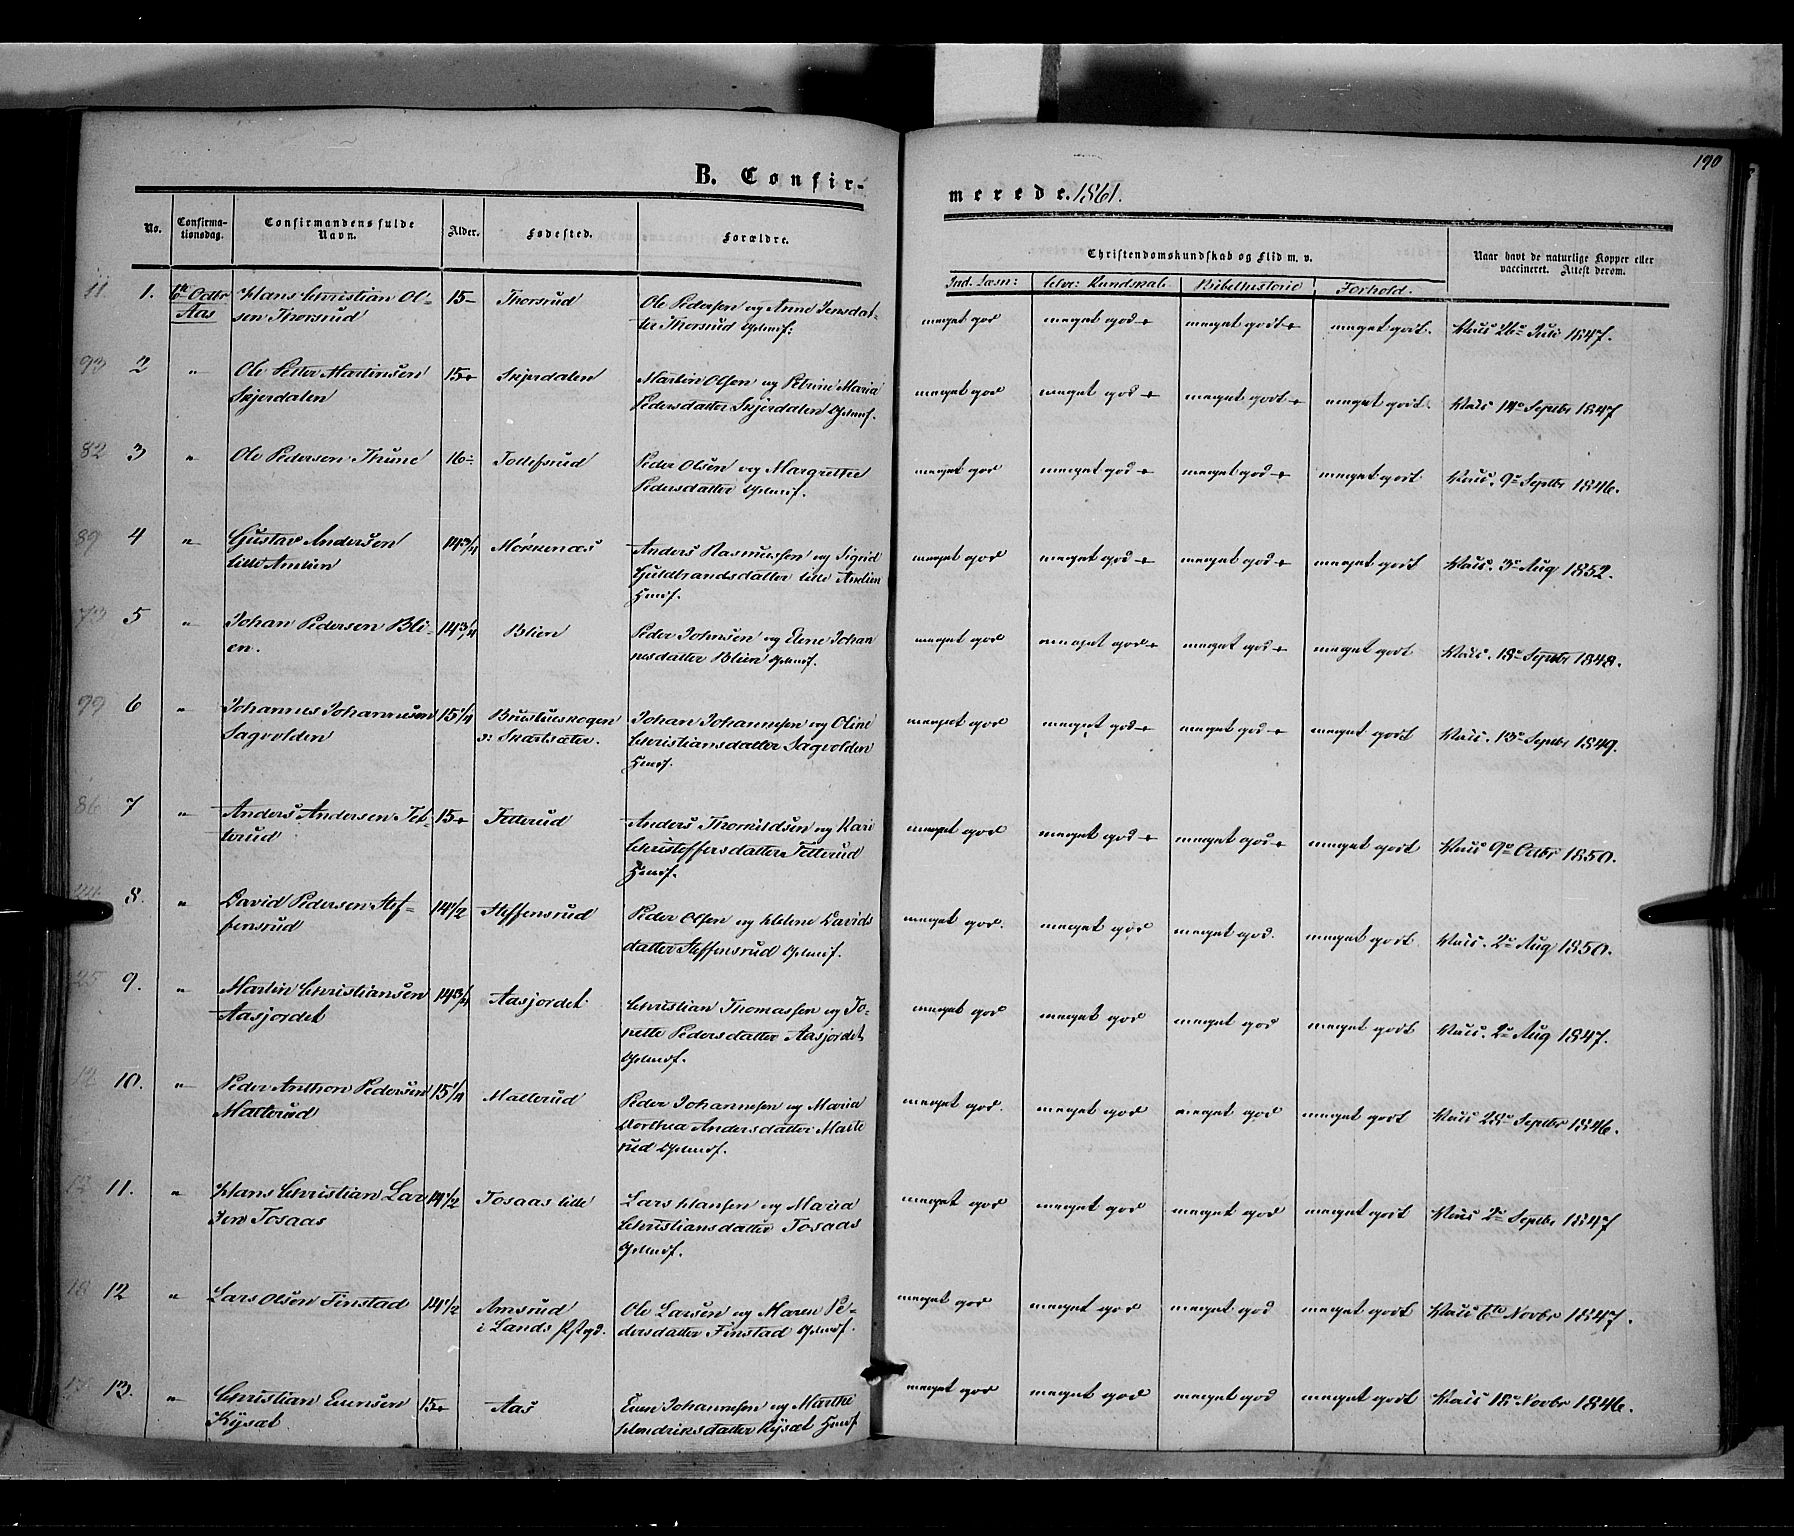 190
B. Confirmerede. 1861.
No. Confirmationsdag. Confirmandens fulde Navn. Alder. Fødested. Forældre. Christendomskundskab og Flid m. v. Naar havt de naturlige Kopper eller vaccineret. Attest derom.
Ind. Læsn: Bibelhistorie Forhold.
11 1. 6te Octbr Aas Hans Christian Ol-
sen Thorsrud 15 Thorsrud Ole Pedersen og Anne Jensdat-
ter Thorsrud Gjelmdf: meget god meget god + meget godt + meget godt. Vacc 26de Juli 1847.
93 2 " Ole Peter Martinsen
Skjerdalen 15+ Skjerdalen Martin Olsen og Petrine Maria
Pedersdatter Skjerdalen Gjelmdf. meget god meget god + meget godt + meget godt. Vacc 14de Septbr 1847
82 3 " Ole Pedersen Thune 16 Tollefsrud Peder Olsen og Margrethe
Pedersdatter Gjelmdf. meget god meget god + meget god + meget godt Vacc. 9de Septbr 1846.
89 4 " Gustav Andersen
lille Amlien 14 3/4 Mørkenæs Anders Rasmussen og Sigrid
Guldbrandsdatter lille Amlien
Hmdf. meget god meget god + meget god + meget godt Vacc. 3de Aug 1852.
73 5 " Johan Pedersen Bli-
en. 14 3/4 Blien Peder Johnsen og Elene Johan
nesdatter Blien Gjelmdf. meget god meget god + meget god + meget godt Vacc. 18de Septbr 1848.
99 6 " Johannes Johannesen
Sagvolden 15 1/4 Brustuskogen
o: Skartsæter. Johan Johannesen og Oline
Christiansdatter Sagvolden
Hmdf. meget god meget god + meget god + meget godt Vacc. 13de Septbr 1849.
86 7 " Anders Andersen Fet-
terud 15+ Fetterud Anders Thorkildsen og Kari
Christoffersdatter Fetterud
Hmdf. meget god meget god + meget god + meget godt Vacc 9de Octbr 1850.
8. " David Pedersen Stef-
fensrud 14 1/2 Steffensrud Peder Olsen og Helene Davids
datter Steffensrud Gjelmdf. meget god. meget god meget god. meget godt. Vacc. 2de Aug 1850.
25 9. " Martin Christiansen
Aasjordet 14 3/4 Aasjordet Christian Thomassen og Jo-
nette Pedersdatter Aasjordet
Gjelmdf. meget god meget god meget god meget godt Vacc. 2de Aug 1847.
12 10. " Peder Anthon Pedersen
Mallerud 15 1/4 Mallerud Peder Johannesen og Maria
Dorthea Andersdatter Malle
rud Gjelmdf. meget god. meget god meget god meget godt Vacc 28de Septbr 1846.
11. " Hans Christian Lar
sen Tosaas 14 1/2 Tosaas lille Lars Hansen og Maria
Christiansdatter Tosaas
Gjelmdf. meget god meget god meget god meget godt Vacc 2de Septbr 1847
18 12 " Lars Olsen Finstad 14 1/2 Amsrud
i Lands Pstgd. Ole Larsen og Maren Pe-
dersdatter Finstad Gjelmdf. meget god meget god meget god meget godt Vacc 6te Novbr 1847.
13. " Christian Evensen
Kysæt 15+ Aas Even Johannesen og Marthe
Hendriksdatter Kysæt Hmdf meget god meget god meget god meget godt Vacc 18de Novbr 1846.